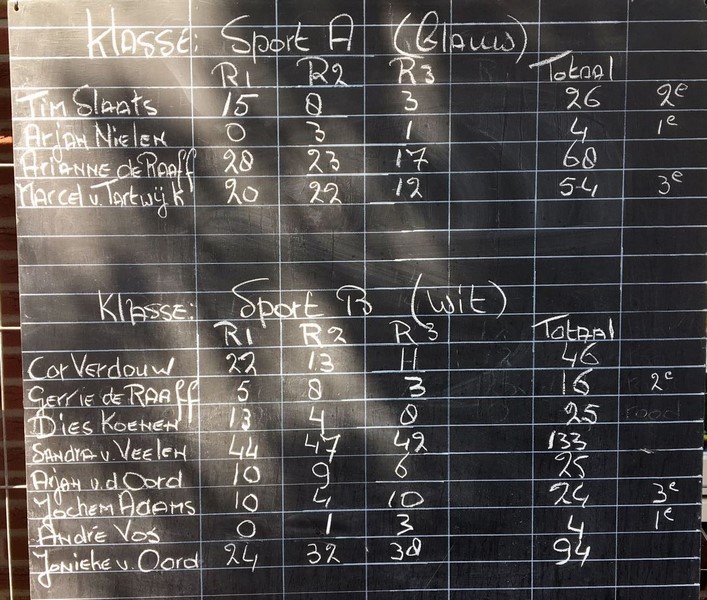 Klasse: Sport A (Blauw)
R1 R2 R3 Totaal
Tim Slaats 15 8 3 26 2e
Arjan Nielen 0 3 1 4 1e
Arianne de Raaff 28 23 17 68
Marcel v. Tartwijk 20 22 12 54 3e
Klasse: Sport B (wit)
R1 R2 R3 Totaal
Cor Verdouw 22 13 11 46
Gerrie de Raaff 5 8 3 16 2e
Dies Koenen 13 4 8 25
Sandra v. Veelen 44 47 42 133
Arjan v.d. Oord 10 9 6 25
Jochem Adams 10 4 10 24 3e
André Vos 0 1 3 4 1e
Jonieke v. Oord 24 32 38 94